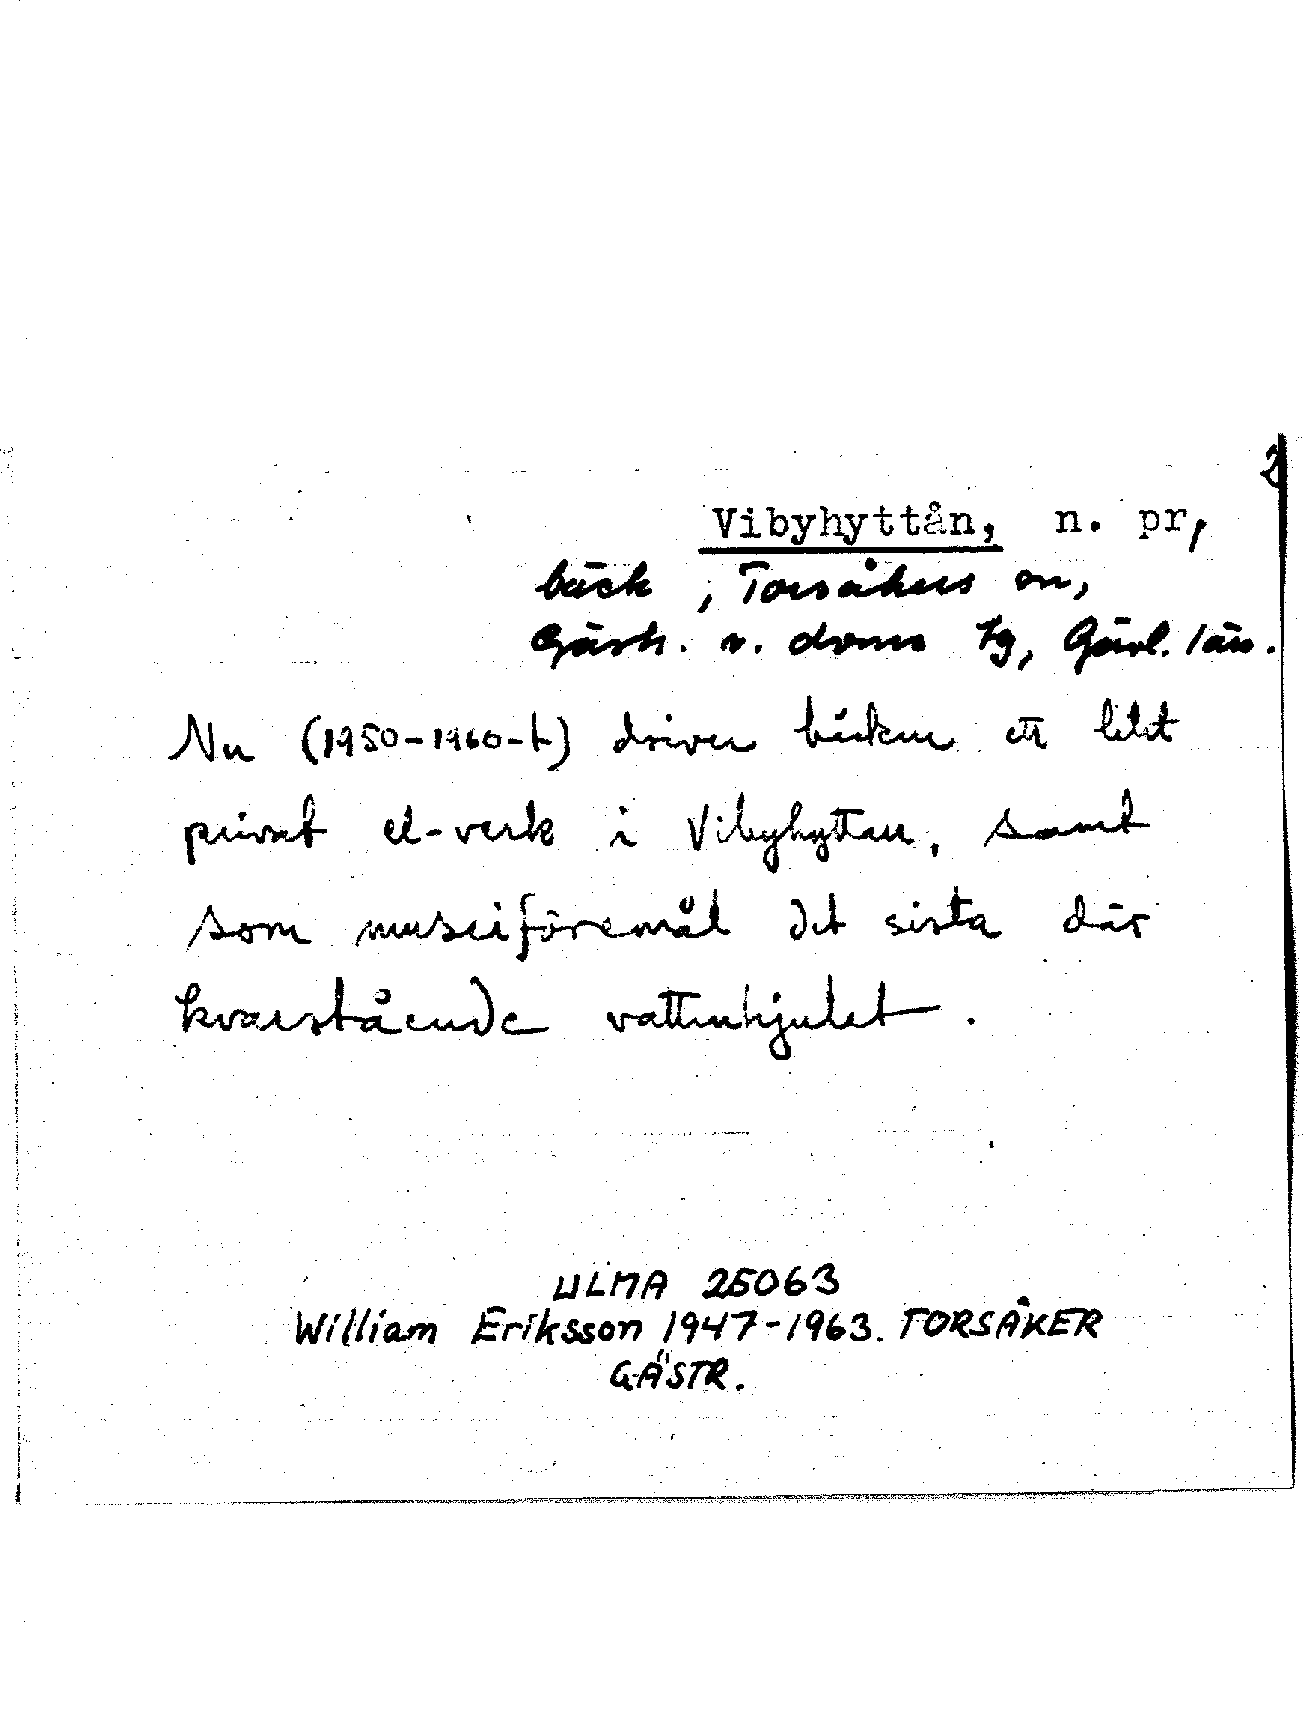 2
Vibyhyttån, n. pr,
bäck, Torsåkers sn,
Gästr. v. doms tg, Gävl. län.
Nu (1950-1960-t) driver bäcken ett litet
privat el-verk i Vibyhyttan, samt
som museiföremål det sista där
kvarstående vattenhjulet.
ULMA 25063
William Eriksson 1947-1963. TORSÅKER
GÄSTR.